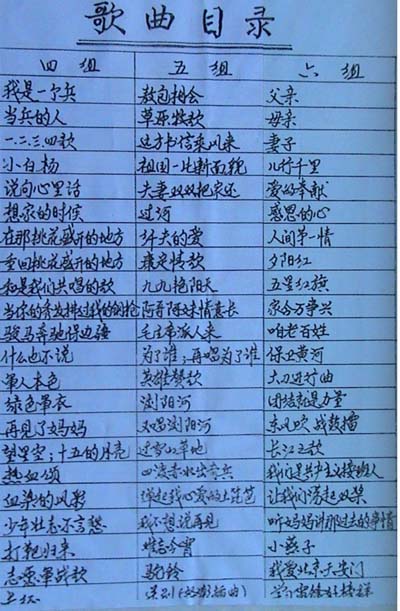 歌曲目录
四组 五组 六组
我是一个兵 敖包相会 父亲
当兵的人 草原牧歌 母亲
一二三四歌 这方书信来 妻子
小白杨 祖国一片新面貌 儿行千里
说句心里话 夫妻双双把家还 爱的奉献
想家的时候 过河 感恩的心
在那桃花盛开的地方 纤夫的爱 人间第一情
重回桃花盛开的地方 康定情歌 夕阳红
和我们共唱的歌 九九艳阳天 五星红旗
当你的秀发拂过我的钢枪 阿哥阿妹情意长 家合万事兴
骏马奔驰保边疆 毛主席派人来 咱老百姓
什么也不说 为了谁；再唱为了谁 保卫黄河
军人本色 英雄赞歌 大刀进行曲
绿色军衣 浏阳河 团结就是力量
再见了妈妈 又唱浏阳河 东风吹战鼓擂
望星空；十五的月亮 过雪山草地 长江之歌
热血颂 四渡赤水出奇兵 我们是共产主义接班人
血染的风彩 弹起我心爱的土琵琶 让我们荡起双桨
少年壮志不言愁 我不想说再见 听妈妈讲那过去的事情
打靶归来 难忘今宵 小燕子
志愿军战歌 驼铃 我爱北京天安门
送别 学习雷锋好榜样